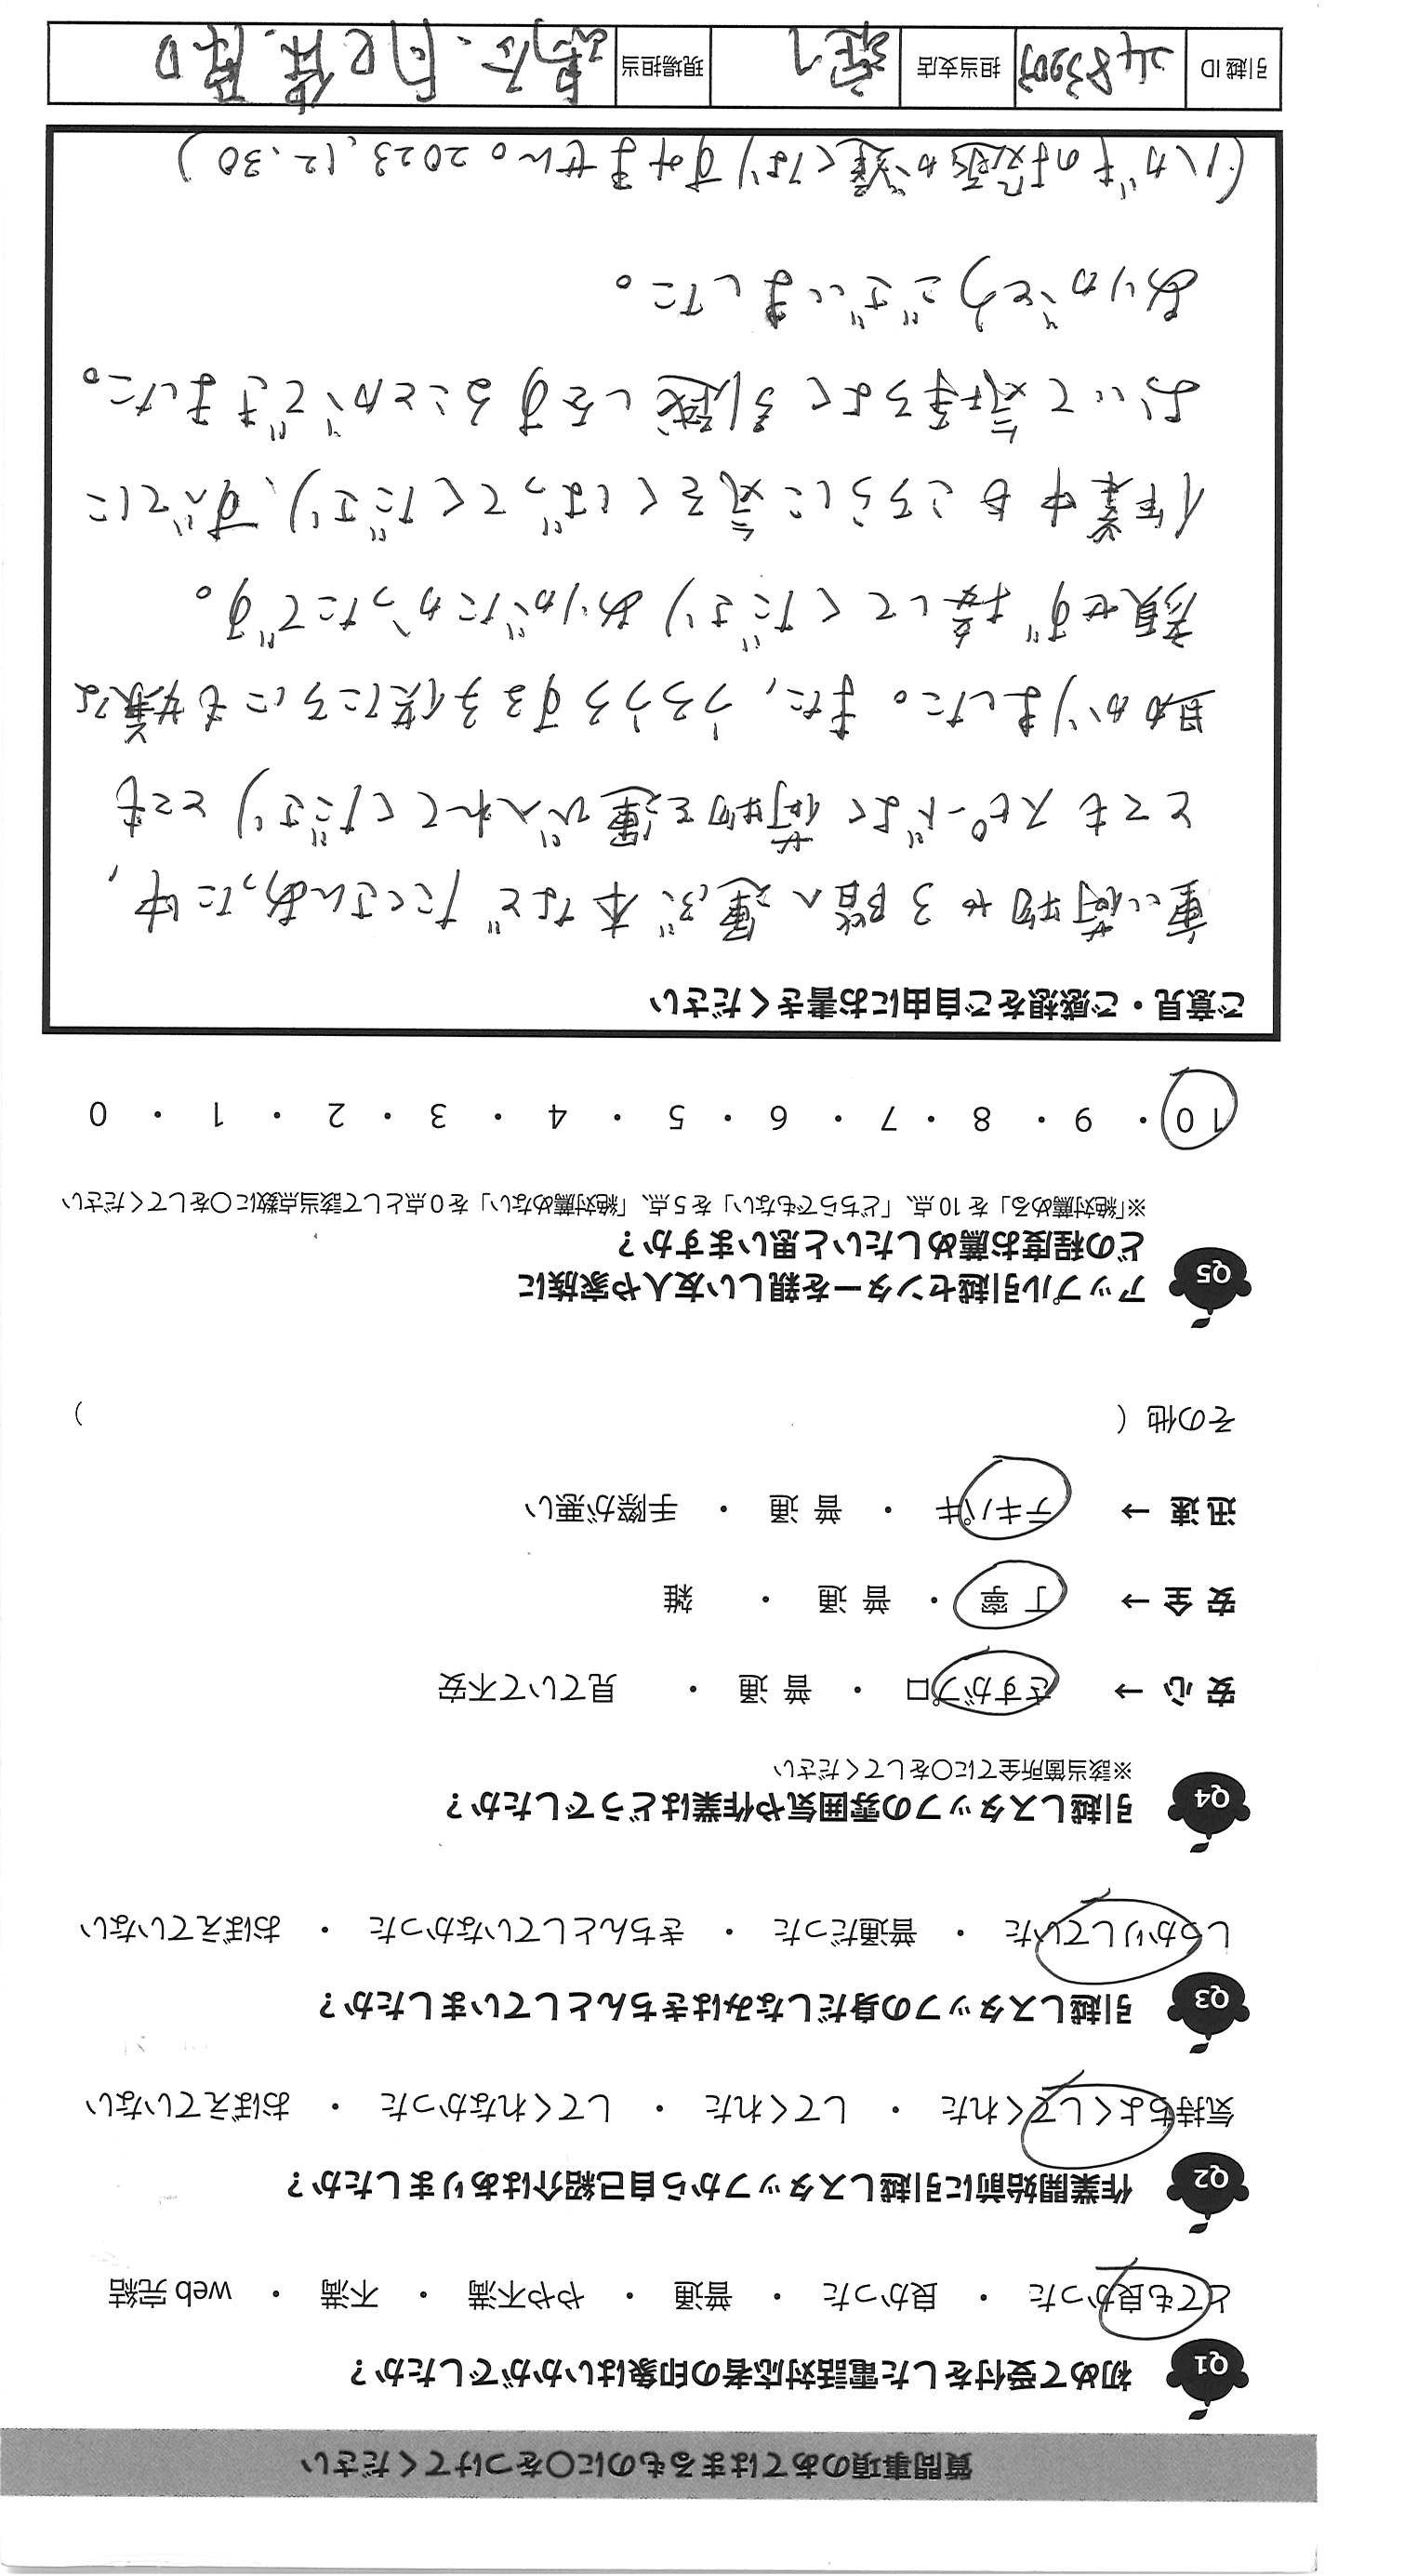 質問事項のあてはまるものに〇をつけてください
Q1 初めて受付をした電話対応者の印象はいかがでしたか？
とても良かった ・ 良かった ・ 普通 ・ やや不満 ・ 不満 ・ web 完結
Q2 作業開始前に引越しスタッフから自己紹介はありましたか？
気持ちよくしてくれた ・ してくれた ・ してくれなかった ・ おぼえていない
Q3 引越しスタッフの身だしなみはきちんとしていましたか？
しっかりしていた ・ 普通だった ・ きちんとしていなかった ・ おぼえていない
Q4 引越しスタッフの雰囲気や作業はどうでしたか？
※該当箇所全てに〇をしてください
安 心 → さすがプロ ・ 普 通 ・ 見ていて不安
安 全 → 丁 寧 ・ 普 通 ・ 雑
迅 速 → テキパキ ・ 普 通 ・ 手際が悪い
その他（ ）
Q5 アップル引越センターを親しい友人や家族に
どの程度お薦めしたいと思いますか？
※「絶対薦める」を 10 点、「どちらでもない」を 5 点、「絶対薦めない」を 0 点として該当点数に〇をしてください
10 ・ 9 ・ 8 ・ 7 ・ 6 ・ 5 ・ 4 ・ 3 ・ 2 ・ 1 ・ 0
ご意見・ご感想をご自由にお書きください
重い荷物や3階へ運ぶ本などたくさんあった中、
とてもスピードよく荷物を運び入れてくださりとても
助かりました。また、うろうろする子供たちにも嫌な
顔せず接してくださりありがたかったです。
作業中もこちらに気をくばってくださり、すべてに
おいて気持ちよく引越しをすることができました。
ありがとうございました。
(ハガキの投函が遅くなりすみません。2023.12.30)
引越 ID 担当支店 現場担当